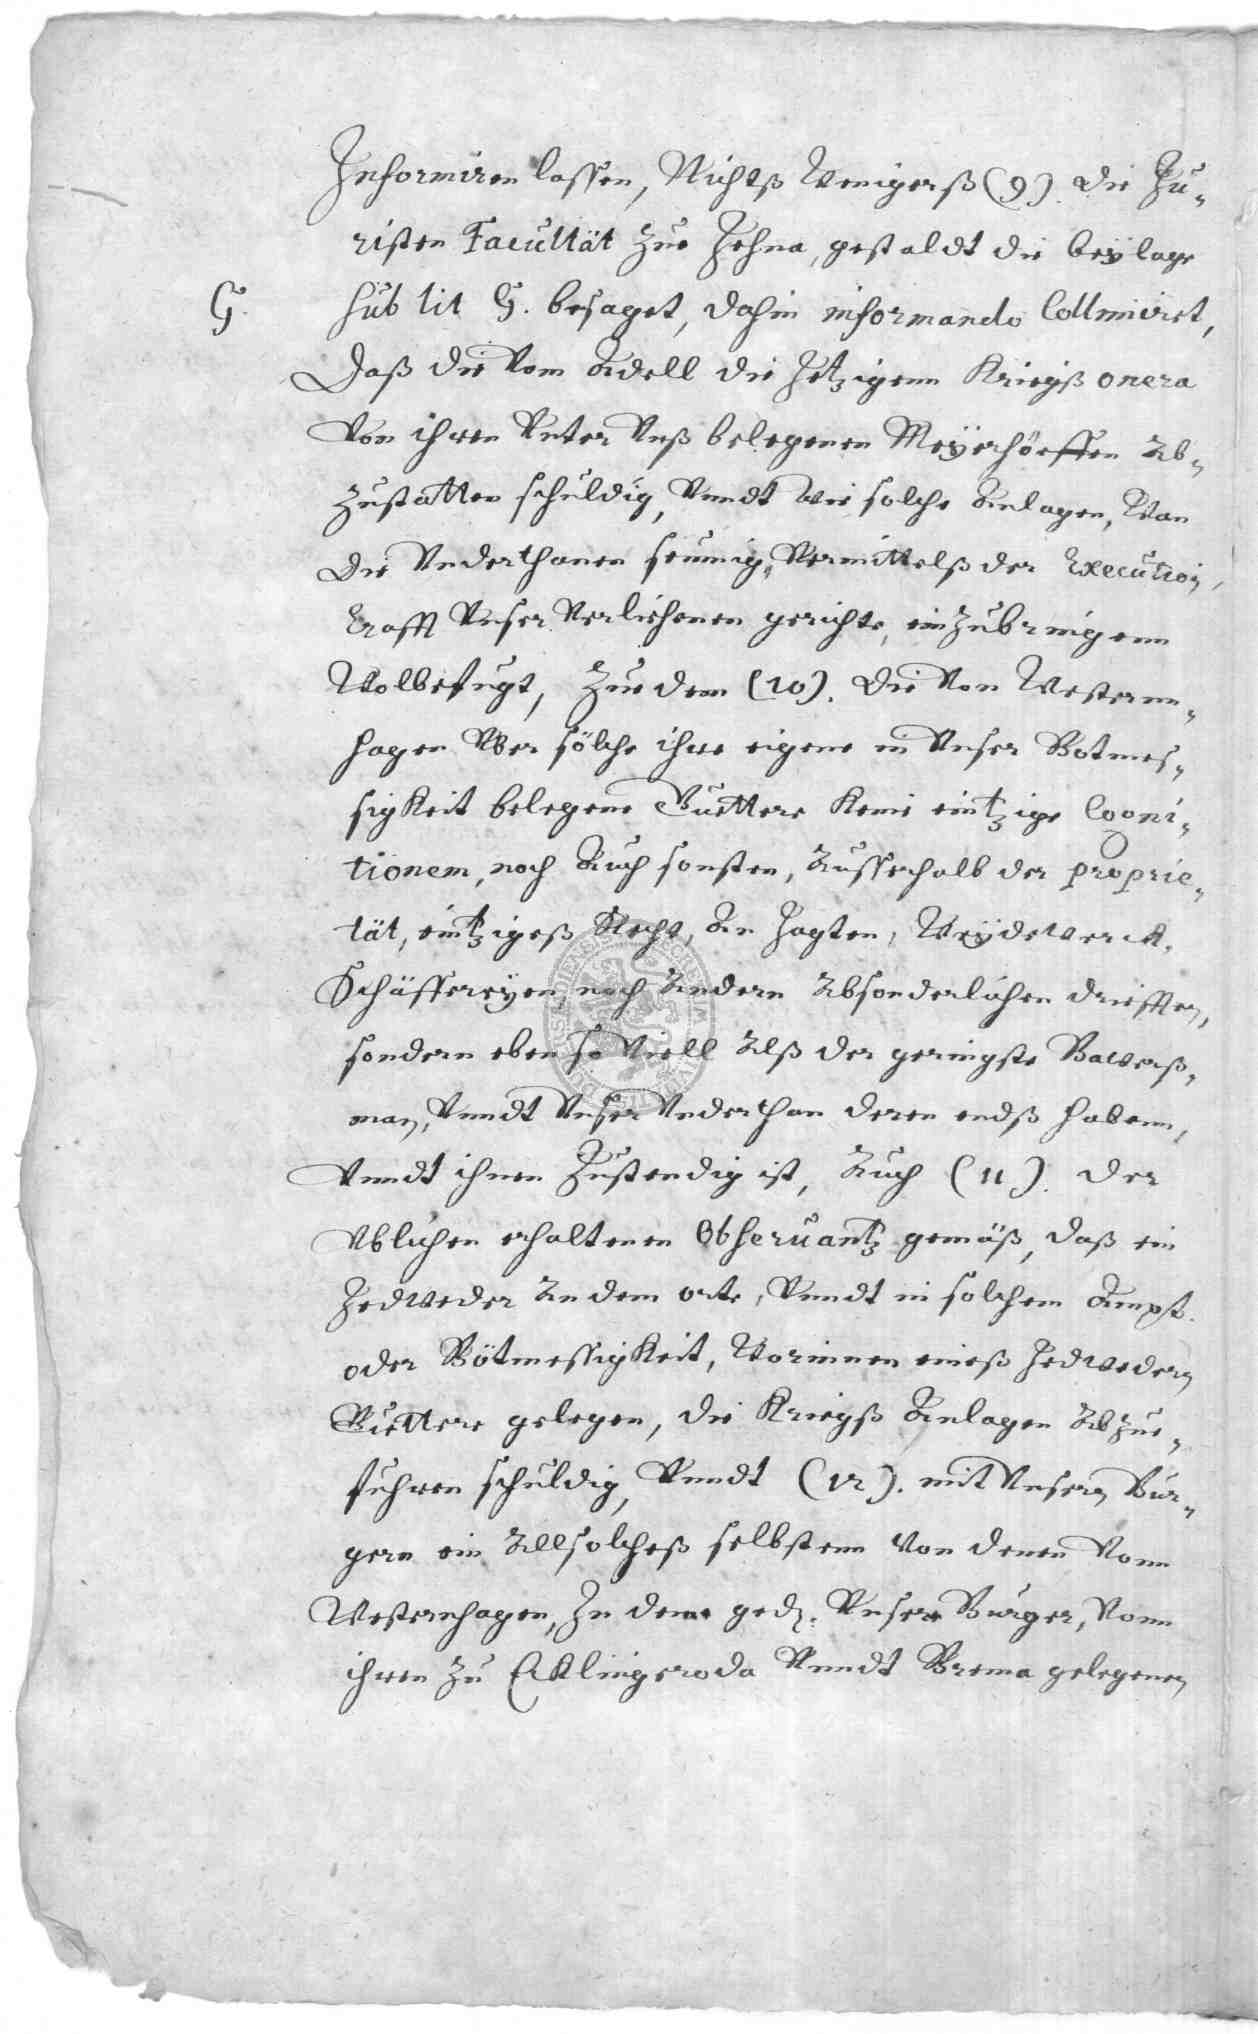 Informiren lassen, Nichtß Wenigerß (9). die Ju-
risten Facultät zue Jehna, gestaldt die beÿlage
G. sub lit G. besaget, dahin informando Collimiret,
Daß die Vom Adell die Jetzigenn Kriegß onera
Von ihren Unter Unß belegenen Meÿerhöeffen Ab-
zustatten schuldig, Unndt wir solche Anlagen, Wan
die Underthanen seumig, Vermittelß der Execution,
Crafft Unser Verliehenen gerichte, einzubringenn
Wolbefugt, Zue dem (10). die Von Westernn-
hagen Uber sölche ihre eigene in Unser Botmes-
sigkeit belegene Guettere Keine eintzige Cogni-
tionem, noch Auch sonsten, Ausserhalb der proprie-
tät, eintzigeß Recht, An Jagten, Weÿdewerck,
Schäffereÿen, noch Andern Absonderlichen drieffte,
sondern eben so Viell Alß der geringste Bawerß-
man, Unndt Unser Underthan deren endß habenn,
Unndt ihnen Zustendig ist, Auch (11). der
Ublichen erhaltenen Obseruantz gemäß, daß ein
Jedweder An dem orte, Unndt in solchem Ampt
oder Bötmessigkeit, Worinnen eineß Jedwedern
Guettere gelegen, die Kriegß Anlagen Abzue-
fuhren schuldig, Unndt (12). mit Unsern Bur-
gern ein Allsolcheß selbstenn Von denen Vonn
Westernhagen, In deme ged. Unsere Burger, Vonn
ihren zu Ecklingeroda Unndt Brema gelegenen